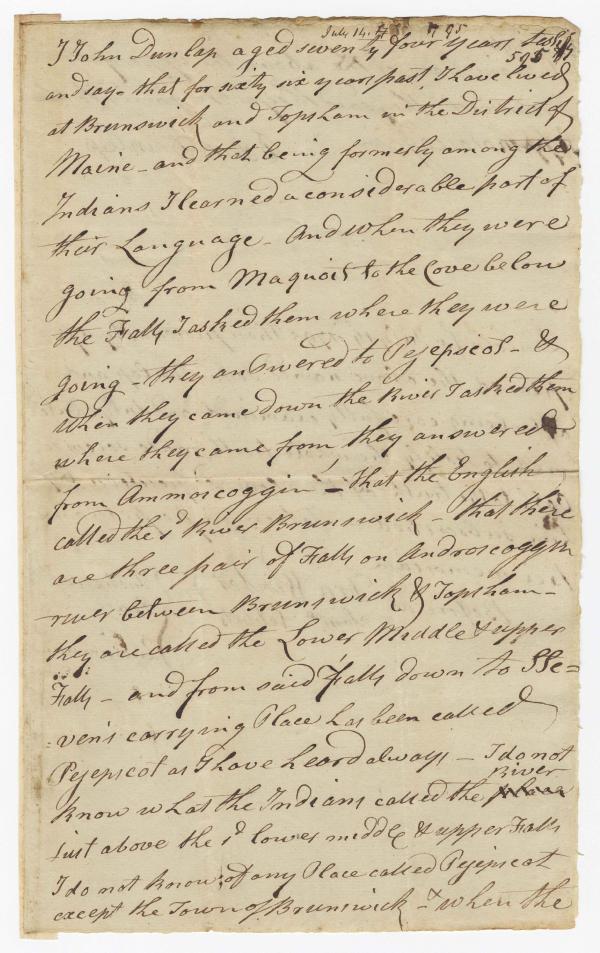 July 14. 1795
I John Dunlap aged seventy four years testify
595
and say - that for sixty six years past, I have lived
at Brunswick and Topsham in the District of
Maine - and that being formerly among the
Indians I learned a considerable part of
their Language - And when they were
going from Maquoit to the Cove below
the Falls I asked them where they were
going - they answered to Pejepscot - &
when they came down the River I asked them
where they came from they answered
from Ammoscoggin - that the English
called the sd River Brunswick - that there
are three pair of Falls on Androscoggin
river between Brunswick & Topsham -
they are called the Lower Middle & upper
Falls - and from said Falls down to Ste=
vens carrying Place has been called
Pejepscot as I have heard always - I do not
River
know what the Indians called the
just above the sd lower middle & upper Falls
I do not know of any Place called Pejepscot
except the Town of Brunswick - & when the